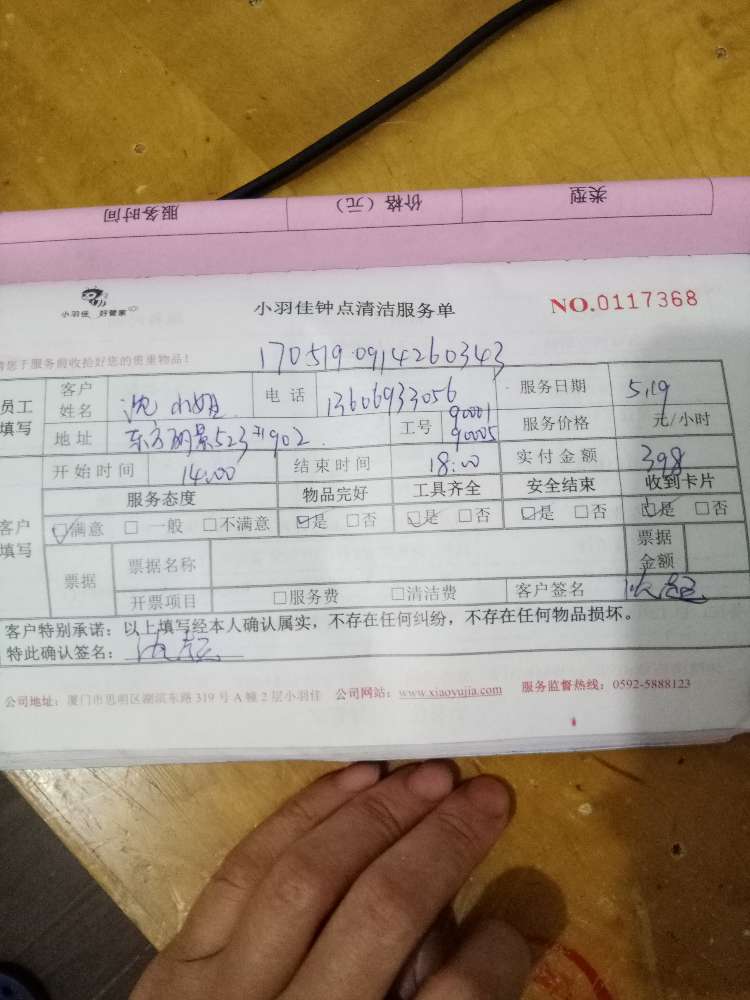 服务时间 价格（元） 类型
小羽佳 好管家
小羽佳钟点清洁服务单
NO.0117368
请您于服务前收拾好您的贵重物品！
170519·0914260343
员工填写
客户姓名 沈小姐 电话 13606933056 服务日期 5.19
地址 东方明景523#1902 工号 90001 90005 服务价格 元/小时
开始时间 14:00 结束时间 18:00 实付金额 398
客户填写
服务态度 物品完好 工具齐全 安全结束 收到卡片
☑满意 □一般 □不满意 ☑是 □否 ☑是 □否 ☑是 □否 ☑是 □否
票据 票据名称 票据金额
开票项目 □服务费 □清洁费 客户签名
客户特别承诺：以上填写经本人确认属实，不存在任何纠纷，不存在任何物品损坏。
特此确认签名：
公司地址：厦门市思明区湖滨东路319号A幢2层小羽佳 公司网站：www.xiaoyujia.com 服务监督热线：0592-5888123